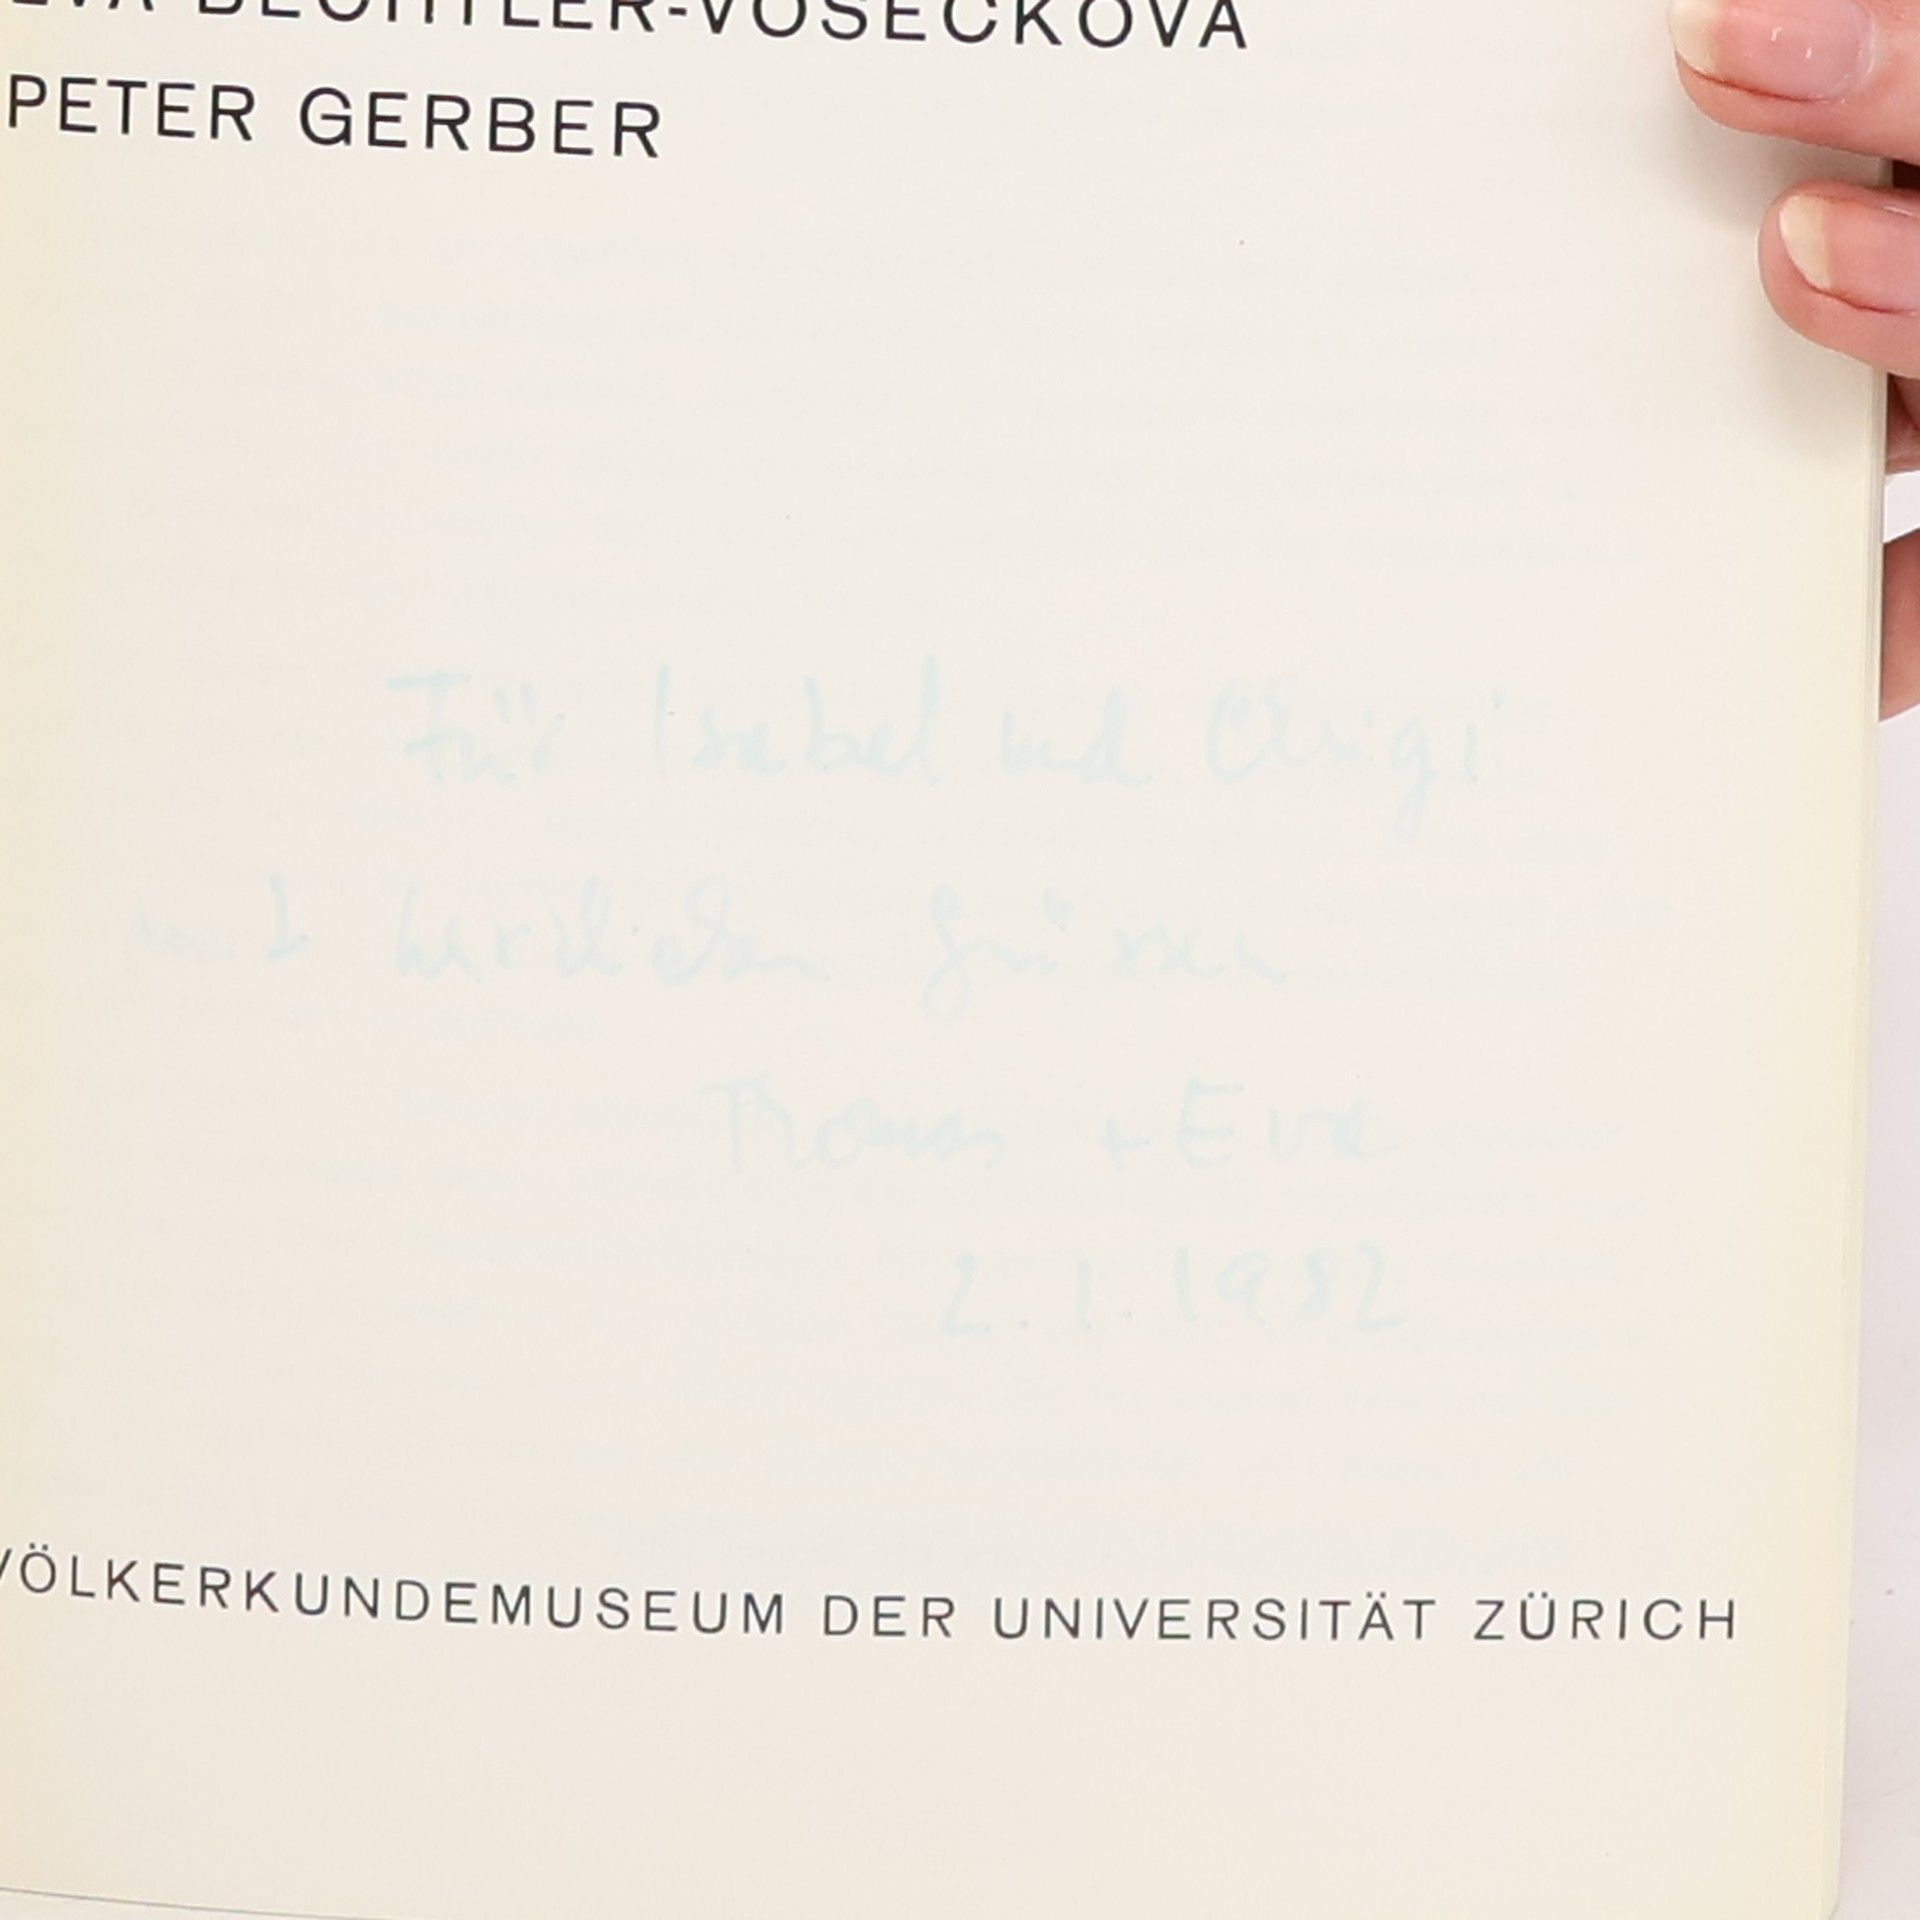 EVA BECHTLER-VOSECKOVA
PETER GERBER
Für Isabel und Chrigi
mit herzlichen Grüssen
Thomas + Eva
2.1.1982
VÖLKERKUNDEMUSEUM DER UNIVERSITÄT ZÜRICH